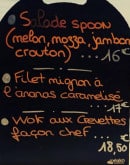 Salade spoon
(melon, mozza, jambon
crouton) ... 16€
Filet mignon à
l'ananas caramelisé
... 17€
Wok aux Crevettes
façon chef ...
18,50